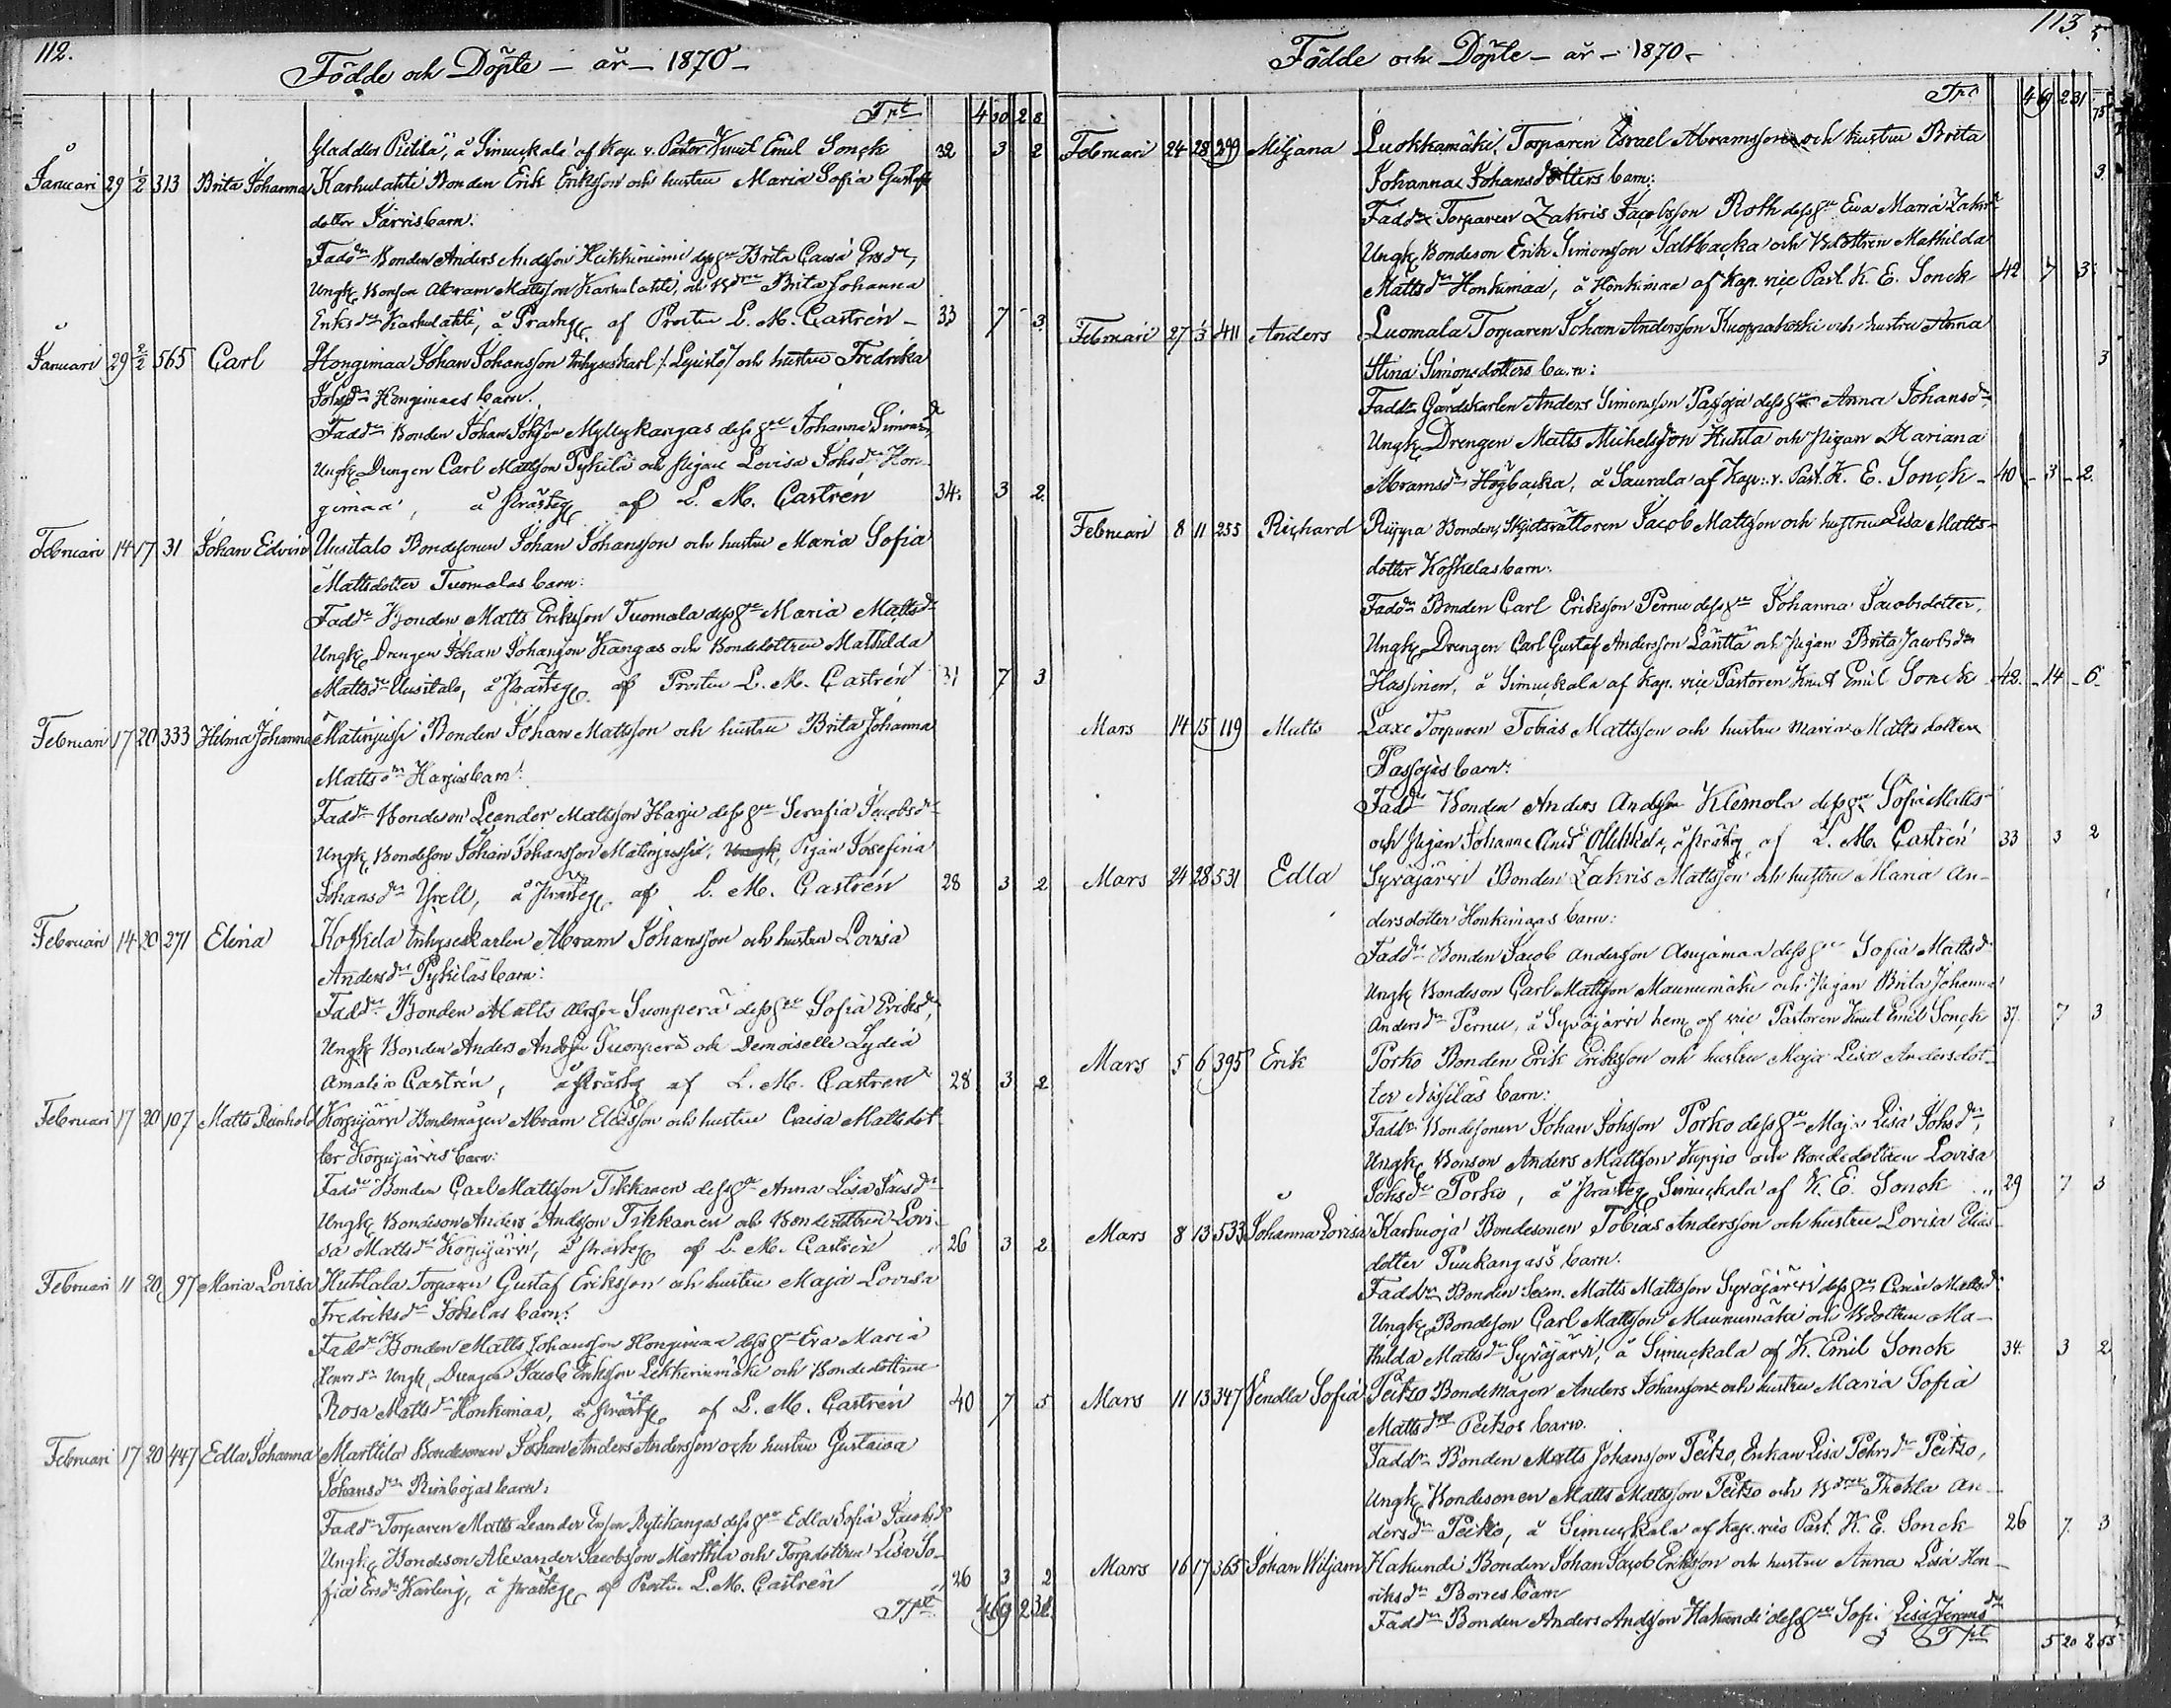 112.
Födde och Döpte - år - 1870 -
Trt 4 10 2 8
Gladdes Pietilä, å Simuckala af Kap. v. Pastor Knut Emil Sonck 32 3 2
Januari 29 1/2 313 Brita Johanna Karhulahti Bonden Erik Eriksson och hustru Maria Sofia Gustafs
dotter Järvis barn:
Faddr Bonden Anders Andsson Heikkiniemi dess hu Brita Caisa Ersdr,
Ungk. Bonson Abram Mattsson Karhulahti, och Bdtren Brita Johanna
Eriksdr Karhulahti, å Prästg. af Prosten L. M. Castrén - 33 7 - 3
Januari 29 2/2 565 Carl Hongimaa Johan Johansson Inhyseskarl och hustru Fredrika
Johsdr Hongimaas barn.
Faddr Bonden Johan Johsson Myllykangas dess hu Johanna Simonsdr,
Ungk. Drengen Carl Mattsson Pykilä och pigan Lovisa Johsdr Hon-
gimaa, å prästg. af L. M. Castrén 34. 3 2
Februari 14 17 31 Johan Edvin Uusitalo Bondesonen Johan Johansson och hustru Maria Sofia
Mattsdotter Tuomalas barn:
Faddr Bonden Matts Eriksson Tuomala dess hu Maria Mattsdr
Ungk. Drengen Johan Johansson Kangas och Bondedottren Mathilda
Mattsdr Uusitalo, å prästg. af Prosten L. M. Castrén 31 7 3
Februari 17 20 333 Hilma Johanna Matinjussi Bonden Johan Mattsson och hustru Brita Johanna
Mattsdr Harjus barn:
Faddr Bondeson Leander Mattsson Harju dess hu Serafia Jacobsdr
Ungk. Bondeson Johan Johansson Matinjussi, Ungk, Pigan Josefina
Johansdr Yrell, å prästg. af L. M. Castrén 28 3 2
Februari 14 20 271 Elina Koskela Inhyseskarlen Abram Johansson och hustru Lovisa
Andersdr Pykiläs barn:
Faddr Bonden Matts Suonperä dess hu Sofia Eriksdr,
Ungk. Bonden Anders Andsson Suonperä och Demoiselle Lydia
Amalia Castrén, å prästg af L. M. Castrén 28 3 2
Februari 17 20 107 Matts Reinhold Korpijärvi Bondemågen Abram Eliasson och hustru Caisa Mattsdot-
ter Korpijärvis barn:
Faddr Bonden Carl Mattsson Tikkanen dess hu Anna Lisa
Ungk. Bondeson Anders Andsson Tikkanen och Bondedottren Lovi-
sa Mattsdr Korpijärvi, å prästg. af L. M. Castrén " 26 3 2
Februari 11 20 97 Maria Lovisa Huhtala Torparen Gustaf Eriksson och hustru Maja Lovisa
Fredriksdr Jokelas barn:
Faddr Bonden Matts Johansson Hongimaa dess hu Eva Maria
Henrsdr Ungk. Drengen Jacob Eriksson och Bondedottren
Rosa Mattsdr Honkimaa, å prästg. af L. M. Castrén 40 7 5
Februari 17 20 447 Edla Johanna Marttila Bondesonen Johan Anders Andersson och hustru Gustava
Johansdr Rimbojas barn:
Faddr Torparen Matts Leander Ersson Rytikangas dess hu Edla Sofia Jacobsdr
Ungk. Bondeson Alexander Jacobsson Marttila och Torpdottren Lisa So-
fia Ersdr Karling, å prästg. af Prosten L. M. Castrén " 26 3 2
Tpt 4 69 2 31.
113.
Födde och Döpte - år - 1870 -
Trt 4 69 2 31
Februari 24 28 299 Miljana Luokkamäki, Torparen Israel Abramsson och hustru Brita
Johanna Johansdotters barn: 3.
Faddr Torparen Zakris Jacobsson Roth dess hu Eva Maria Zakrdr
Ungk. Bondeson Erik Simonsson Saltbacka och Bdottren Mathilda
Mattsdr Honkimaa, å Honkimaa af Kap. vice Past. K. E. Sonck 42 7 3
Februari 27 1/3 411 Anders Luomala Torparen Johan Andersson Kuoppakoski och hustru Anna
Stina Simonsdotters barn: 3
Faddr Gårdskarlen Anders Simonsson Passoja dess hu Anna Johansdr
Ungk. Drengen Matts Michelsson Huhta och pigan Mariana
Abramsdr Högbacka, å Saurala af Kap. v. Past. K. E. Sonck - 40 - 3 - 2.
Februari 8 11 255 Richard Ruppa Bonden, Skjutsrättaren Jacob Mattsson och hustru Lisa Matts-
dotter Koskelas barn:
Faddr Bonden Carl Eriksson Pernu dess hu Johanna Jacobsdotter,
Ungk. Drengen Carl Gustaf Andersson Länttä och pigan Brita Jacobsdr
Hassinen, å Simuckala af Kap. vice Pastoren Knut Emil Sonck - 42. - 14 - 6.
Mars 14 15 119 Matts Laxe Torparen Tobias Mattsson och hustru Maria Mattsdotter
Passojas barn:
Faddr Bonden Anders Andsson Klemola dess hu Sofia Matts-
och pigan Johanna å prästg af L. M. Castrén 33 3 2
Mars 24 28 531 Edla Syväjärvi Bonden Zakris Mattsson och hustru Maria An-
dersdotter Honkimaas barn:
Faddr Bonden Jacob Andersson dess hu Sofia Mattsdr
Ungk. Bondeson Carl Mattsson Maunumäki och pigan Brita Johanna
Andersdr Pernu, å Syväjärvi hem. af vice Pastoren Knut Emil Sonck 37. 7 3
Mars 5 6 395 Erik Porko Bonden Erik Eriksson och hustru Maja Lisa Andersdot-
ter Nissiläs barn:
Faddr Bondesonen Johan Johsson Porko dess hu Maja Lisa Johsdr,
Ungk. Bonson Anders Mattsson Kuppio och Bondedottren Lovisa
Johsdr Porko, å prästg. Simuckala af K. E. Sonck " 29 7 3
Mars 8 13 533 Johanna Lovisa Karhuoja Bondesonen Tobias Andersson och hustru Lovisa Elias-
dotter Puukangas's barn.
Faddr Bonden Matts Mattsson Syväjärvi dess hu Caisa Mattsdr
Ungk. Bondeson Carl Mattsson Maunumäki och Bdottren Ma-
thilda Mattsdr Syväjärvi, å Simuckala af K. Emil Sonck 34. 3 2
Mars 11 13 347 Vendla Sofia Peitzo Bondemågen Anders Johansson och hustru Maria Sofia
Mattsdr Peitzos barn.
Faddr Bonden Matts Johansson Peitzo, Enkan Lisa Pehrsdr Peitzo,
Ungk. Bondesonen Matts Mattsson Peitzo och Bdtren Thekla An-
dersdr Peitzo, å Simuckala af Kap. vice Past. K. E. Sonck 26 7. 3
Mars 16 17 365 Johan Wiljam Hakundi Bonden Johan Jacob Eriksson och hustru Anna Lisa Hen-
riksdr Borres barn
Faddr Bonden Anders Andsson Hakundi dess hu Sofi Lisa
Tpt 5 20 2 55